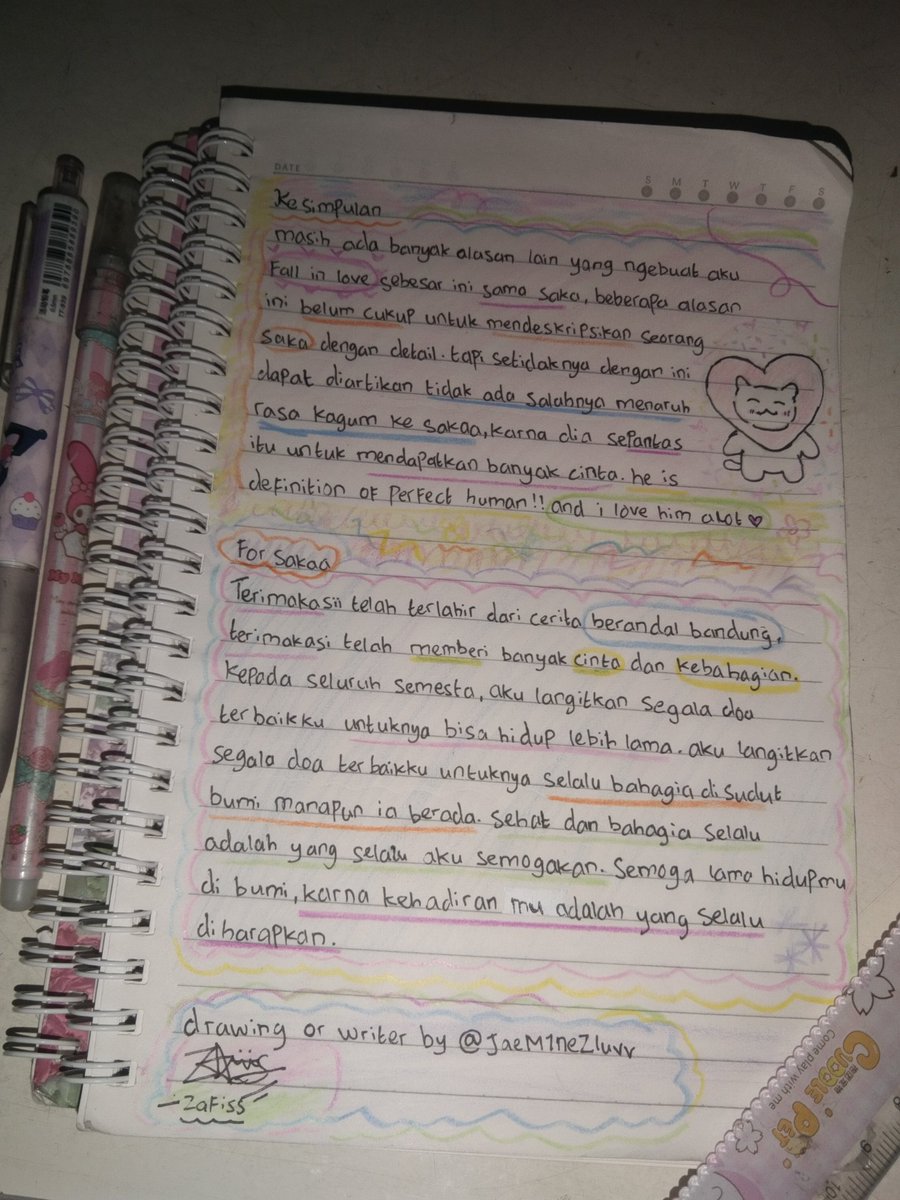 DATE
S M T W T F S
Kesimpulan
masih ada banyak alasan lain yang ngebuat aku
Fall in love sebesar ini sama saka, beberapa alasan
ini belum cukup untuk mendeskripsikan seorang
saka dengan detail. tapi setidaknya dengan ini
dapat diartikan tidak ada salahnya menaruh
rasa kagum ke sakaa, karna dia sepantas
itu untuk mendapatkan banyak cinta. he is
definition of perfect human!! and i love him alot ♡
For sakaa
Terimakasii telah terlahir dari cerita berandal bandung,
terimakasi telah memberi banyak cinta dan kebahagian.
kepada seluruh semesta, aku langitkan segala doa
terbaikku untuknya bisa hidup lebih lama. aku langitkan
segala doa terbaikku untuknya selalu bahagia di sudut
bumi manapun ia berada. sehat dan bahagia selalu
adalah yang selalu aku semogakan. semoga lama hidupmu
di bumi, karna kehadiran mu adalah yang selalu
diharapkan.
drawing or writer by @JaeM1neZluvv
-Zafiss-
CUDDLE PET
Come play with me